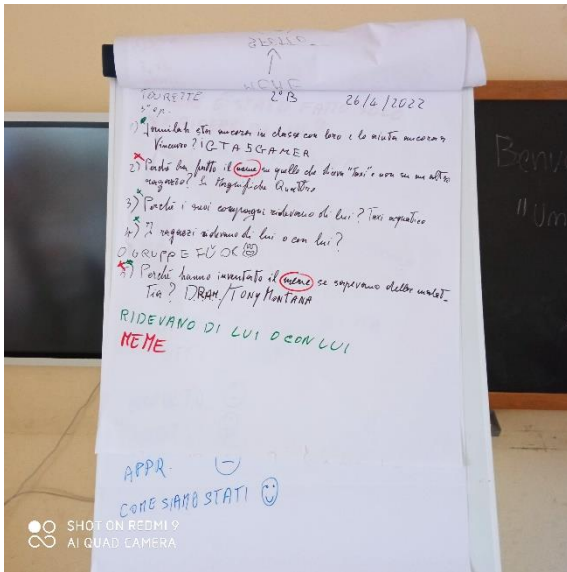 MEME
TOURETTE 2°B 26/4/2022
5° ep.
1) Ammilato sta ancora in classe con loro e lo aiuta ancora
Vincenzo? IGTA5GAMER
2) Perché han fatto il meme su quello che diceva "Taxi" e non su un altro
ragazzo? Le Magnifiche Quattro
3) Perché i suoi compagni ridevano di lui? Taxi acquatico
4) I ragazzi ridevano di lui o con lui?
O GRUPP E FÙ OC
5) Perché hanno inventato il meme se sapevano della malat-
tia? DRAM/TONY MONTANA
RIDEVANO DI LUI O CON LUI
MEME
APPR.
COME SIAMO STATI
Benv
"Um
SHOT ON REDMI 9
AI QUAD CAMERA